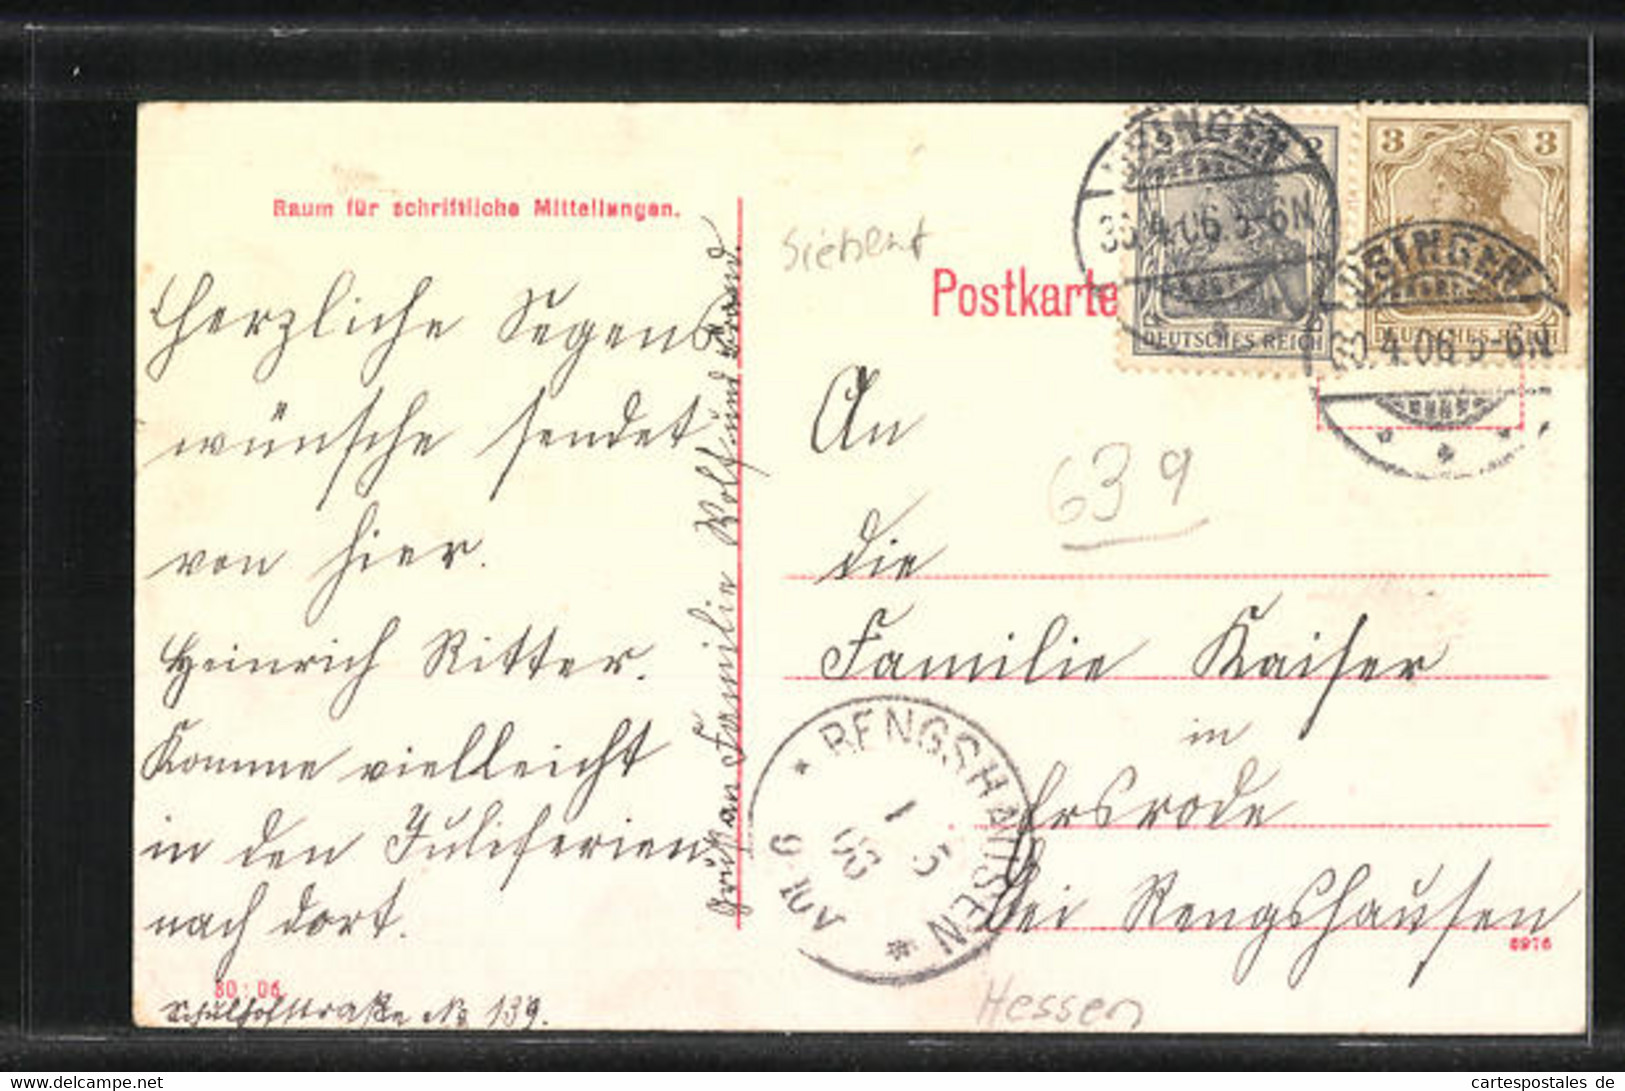 Raum für schriftliche Mitteilungen.
Herzliche Segens
wünsche sendet
von hier.
Heinrich Ritter.
Komme vielleicht
in den Juliferien
nach dort.
30 · 06.
Schulhofstraße No 139.
Gruß an Familie Wolf und Brand.
Postkarte
An
die
Familie Kaiser
in
Ersrode
bei Rengshausen
6976
639
Hessen
USINGEN
30.4.06 5-6N
2
DEUTSCHES REICH
3 3
DEUTSCHES REICH
USINGEN
30.4.06 5-6N
* RENGSHAUSEN *
1 5
06
9-10V
cartespostales.delcampe.net
cartespostales de